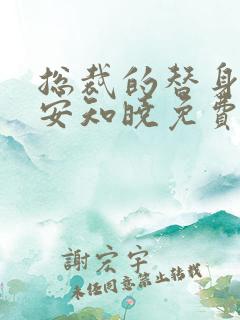 总裁的替身
安知晓免費
謝宏宇
未经同意禁止转载